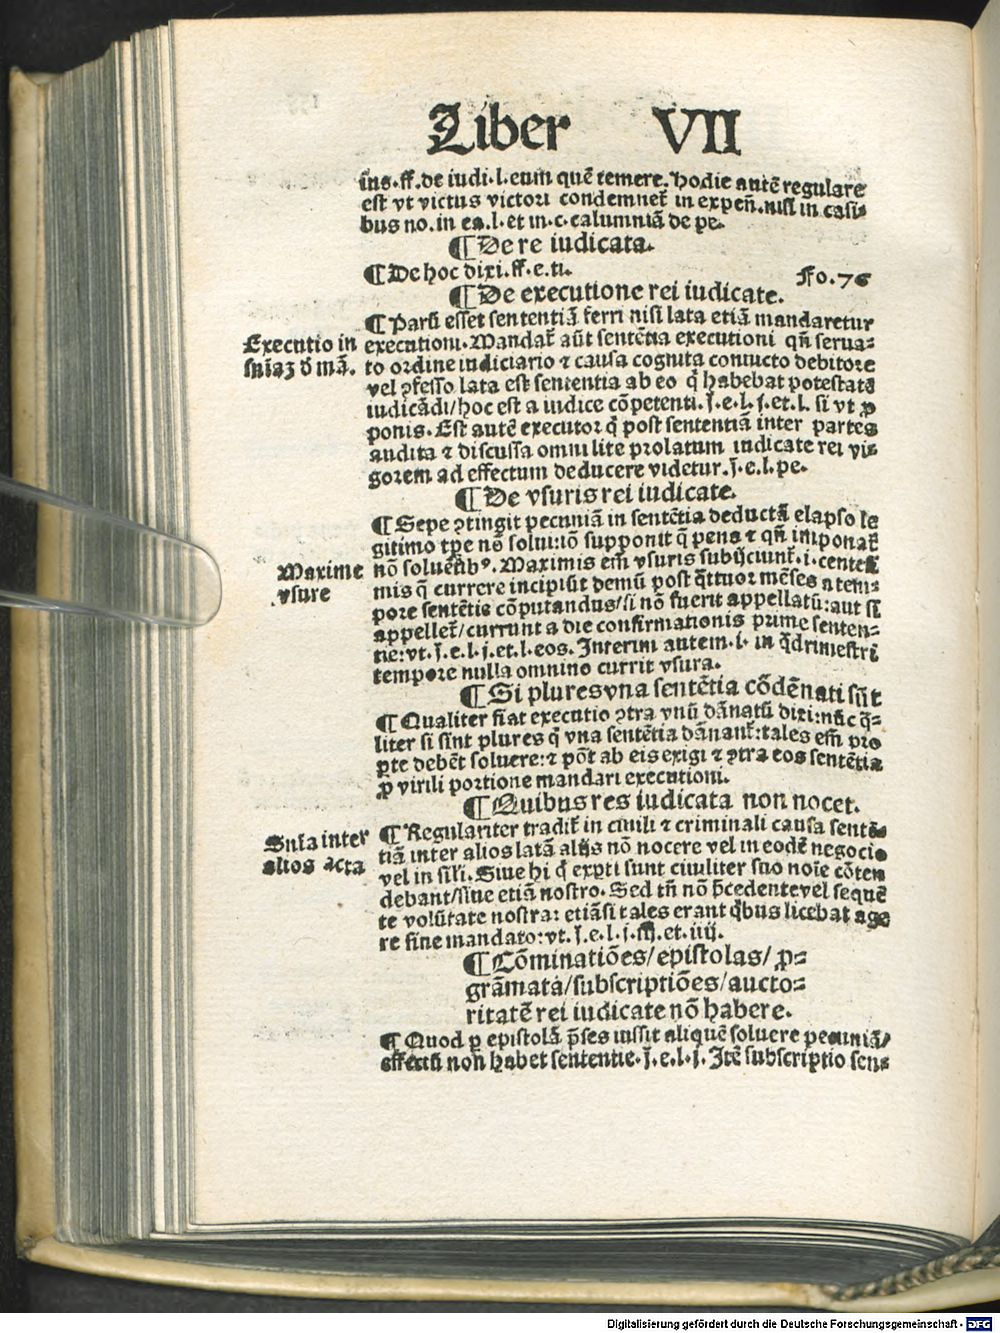 Liber VII
ins.ff.de iudi.l.eum quē temere. Hodie autē regulare
est vt victus victori condemnet᷑ in expen̄.nisi in casi⸗
bus no.in ea.l.et in.c.calumniā de pe.
¶ De re iudicata.
¶ De hoc dixi.ff.e.ti. Fo.76
¶ De executione rei iudicate.
¶ Parū esset sententiā ferri nisi lata etiā mandaretur
Executio in
sniaꝫ ꝺ mā.
executioni. Mandat᷑ aūt sentētia executioni qn̄ serua⸗
to ordine iudiciario ⁊ causa cognita conuicto debitore
vel ꝯfesso lata est sententia ab eo q̄ habebat potestatē
iudicādi/hoc est a iudice cōpetenti.ſ.e.l.j.et.l. si vt ꝓ
ponis. Est autē executor q̄ post sententiā inter partes
audita ⁊ discussa omni lite prolatum iudicate rei vi⸗
gorem ad effectum deducere videtur.ſ.e.l.pe.
¶ De vsuris rei iudicate.
¶ Sepe ꝯtingit pecuniā in sentētia deductā elapso le
gitimo tꝑe nō solui:iō supponit q̄ pena ⁊ qn̄ imponat᷑
Maxime
vsure
nō soluētibꝰ. Maximis em̄ vsuris subijciunt᷑.i.centesi
mis q̄ currere incipiūt demū post q̄ttuor mēses a tem⸗
pore sentētie cōputandus/si nō fuerit appellatū:aut si
appellet᷑/currunt a die confirmationis prime senten⸗
tie:vt.ſ.e.l.j.et.l.eos. Interim autem.l. in q̄drimestri
tempore nulla omnino currit vsura.
¶ Si plures vna sentētia cōdēnati sūt
¶ Qualiter fiat executio ꝯtra vnū dānatū dixi:nūc q̄⸗
liter si sint plures q̄ vna sentētia dānant᷑:tales em̄ pro
ꝑte debēt soluere:⁊ pōt ab eis exigi ⁊ ꝯtra eos sentētia
ꝓ virili portione mandari executioni.
¶ Quibus res iudicata non nocet.
Snīa inter
alios acta
¶ Regulariter tradit᷑ in ciuili ⁊ criminali causa sentē⸗
tiā inter alios latā alijs nō nocere vel in eodē negocio
vel in sili. Siue hi q̄ exꝑti sunt ciuiliter suo noīe cōten
debant/siue etiā nostro. Sed tn̄ nō p̄cedente vel sequē
te volūtate nostra: etiāsi tales erant q̄bus licebat age
re sine mandato:vt.ſ.e.l.j.iij.et.iiij.
¶ Cōminatiōes/epistolas/ꝓ⸗
grāmata/subscriptiōes/aucto⸗
ritatē rei iudicate nō habere.
¶ Quod ꝑ epistolā p̄ses iussit aliquē soluere pecuniā/
effectū non habet sententie.ſ.e.l.j. Itē subscriptio sen⸗
Digitalisierung gefördert durch die Deutsche Forschungsgemeinschaft - DFG